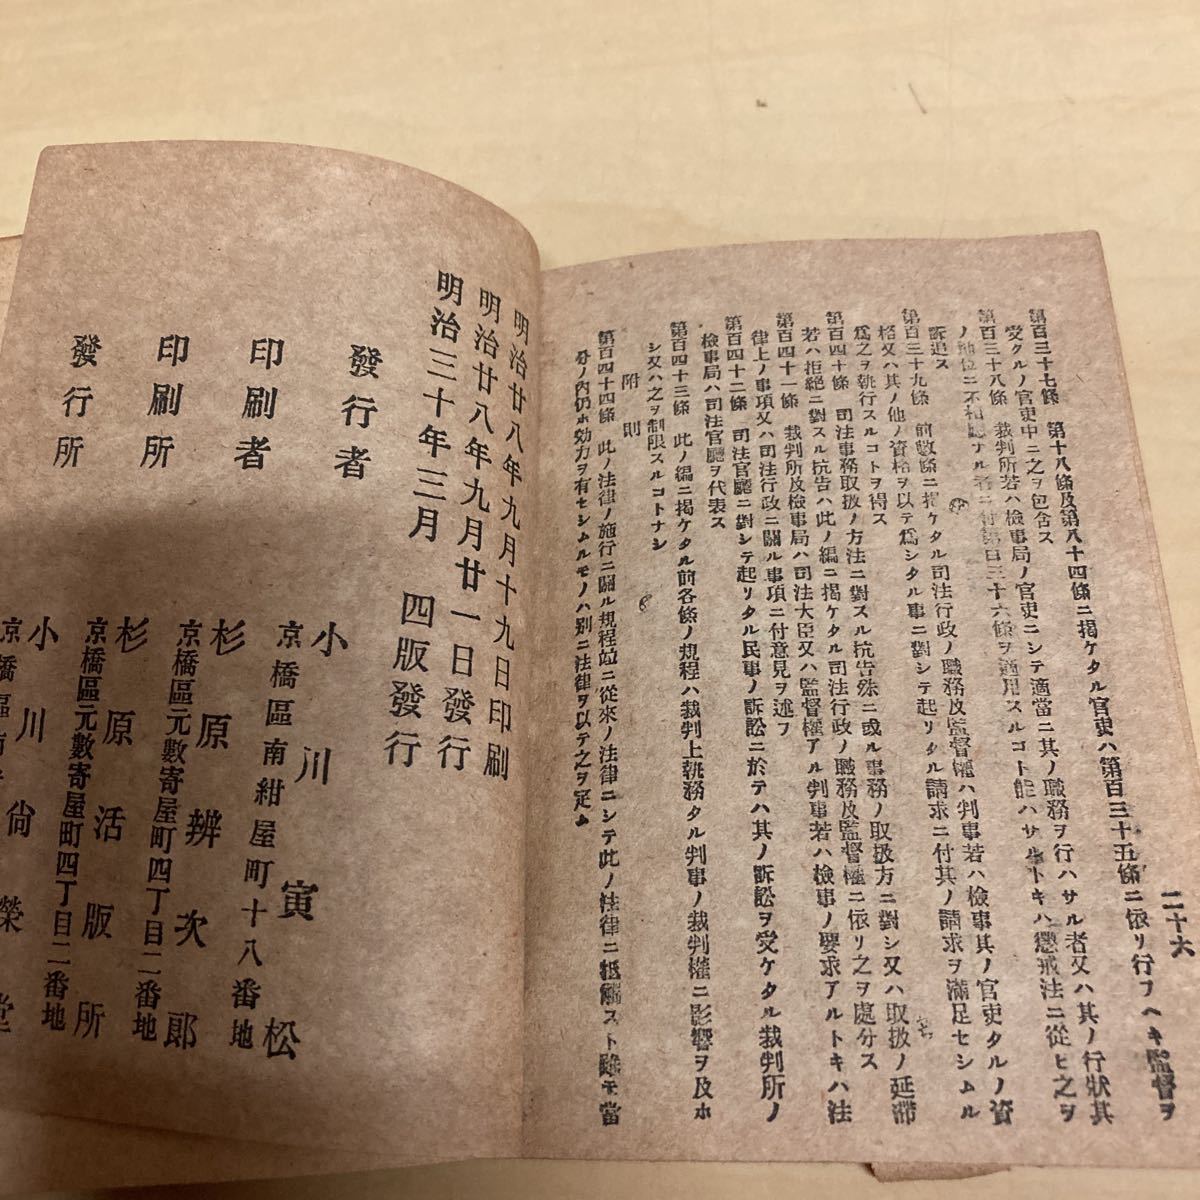 二十六
第百三十七條 第十八條及第八十四條ニ揭ケタル官吏ハ第百三十五條ニ依リ行フヘキ監督ヲ
受クルノ官吏中ニ之ヲ包含ス
第百三十八條 裁判所若ハ檢事局ノ官吏ニシテ適當ニ其ノ職務ヲ行ハサル者又ハ其ノ行狀其
ノ地位ニ不相應ナル者ニ付第百三十六條ヲ適用スルコト能ハサルトキハ懲戒法ニ從ヒ之ヲ
訴追ス
第百三十九條 前數條ニ揭ケタル司法行政ノ職務及監督權ハ判事若ハ檢事其ノ官吏タルノ資
格又ハ其ノ他ノ資格ヲ以テ爲シタル事ニ對シテ起リタル請求ニ付其ノ請求ヲ滿足セシムル
爲之ヲ執行スルコトヲ得ス
第百四十條 司法事務取扱ノ方法ニ對スル抗告殊ニ或ル事務ノ取扱方ニ對シ又ハ取扱ノ延滯
若ハ拒絕ニ對スル抗告ハ此ノ編ニ揭ケタル司法行政ノ職務及監督權ニ依リ之ヲ處分ス
第百四十一條 裁判所及檢事局ハ司法大臣又ハ監督權アル判事若ハ檢事ノ要求アルトキハ法
律上ノ事項又ハ司法行政ニ關ル事項ニ付意見ヲ述フ
第百四十二條 司法官廳ニ對シテ起リタル民事ノ訴訟ニ於テハ其ノ訴訟ヲ受ケタル裁判所ノ
檢事局ハ司法官廳ヲ代表ス
第百四十三條 此ノ編ニ揭ケタル前各條ノ規程ハ裁判上執務タル判事ノ裁判權ニ影響ヲ及ホ
シ又ハ之ヲ制限スルコトナシ
附則
第百四十四條 此ノ法律ノ施行ニ關ル規程竝ニ從來ノ法律ニシテ此ノ法律ニ抵觸スト雖モ當
分ノ內仍ホ効力ヲ有セシムルモノハ別ニ法律ヲ以テ之ヲ定ム
明治廿八年九月十九日印刷
明治廿八年九月廿一日發行
明治三十年三月 四版發行
發行者 小川寅松
京橋區南紺屋町十八番地
印刷者 杉原辨次郎
京橋區元數寄屋町四丁目二番地
印刷所 杉原活版所
京橋區元數寄屋町四丁目二番地
發行所 小川尙榮堂
京橋區南